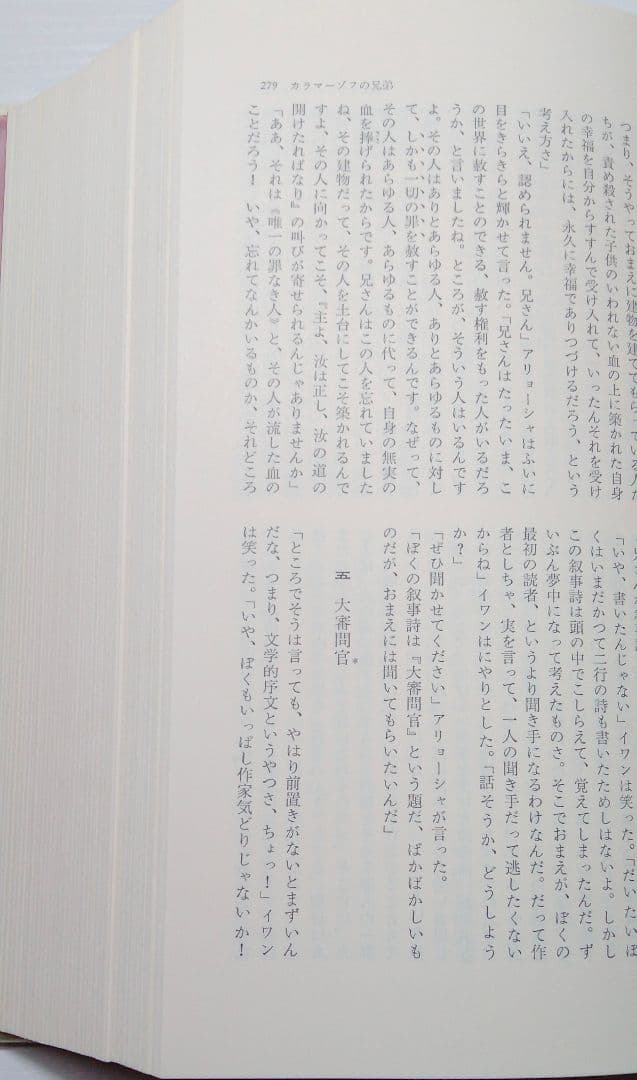 279 カラマーゾフの兄弟
つまり、そうやっておまえに建物を建ててもらっている人た
ちが、責め殺された子供のいわれない血の上に築かれた自身
の幸福を自分からすすんで受け入れて、いったんそれを受け
入れたからには、永久に幸福でありつづけるだろう、という
考え方さ」
「いいえ、認められません。兄さん」アリョーシャはふいに
目をきらきらと輝かせて言った。「兄さんはたったいま、こ
の世界に赦すことのできる、赦す権利をもった人がいるだろ
うか、と言いましたね。ところが、そういう人はいるんです
よ。その人はありとあらゆる人、ありとあらゆるものに対し
て、しかも一切の罪を赦すことができるんです。なぜって、
その人はあらゆる人、あらゆるものに代って、自身の無実の
血を捧げられたからです。兄さんはこの人を忘れていました
ね、その建物だって、その人を土台にしてこそ築かれるんで
すよ、その人に向かってこそ、『主よ、汝は正し、汝の道の
開けたればなり』の叫びが寄せられるんじゃありませんか」
「ああ、それは『唯一の罪なき人』と、その人が流した血の
ことだろう！ いや、忘れてなんかいるものか、それどころ
「いや、書いたんじゃない」イワンは笑った。「だいたいぼ
くはいまだかつて二行の詩も書いたためしはないよ。しかし
この叙事詩は頭の中でこしらえて、覚えてしまったんだ。ず
いぶん夢中になって考えたものさ。そこでおまえが、ぼくの
最初の読者、というより聞き手になるわけなんだ。だって作
者としちゃ、実を言って、一人の聞き手だって逃したくない
からね」イワンはにやりとした。「話そうか、どうしよう
か？」
「ぜひ聞かせてください」アリョーシャが言った。
「ぼくの叙事詩は『大審問官』という題だ、ばかばかしいも
のだが、おまえには聞いてもらいたいんだ」
五 大審問官*
「ところでそうは言っても、やはり前置きがないとまずいん
だな、つまり、文学的序文というやつさ、ちょっ！」イワン
は笑った。「いや、ぼくもいっぱし作家気どりじゃないか！